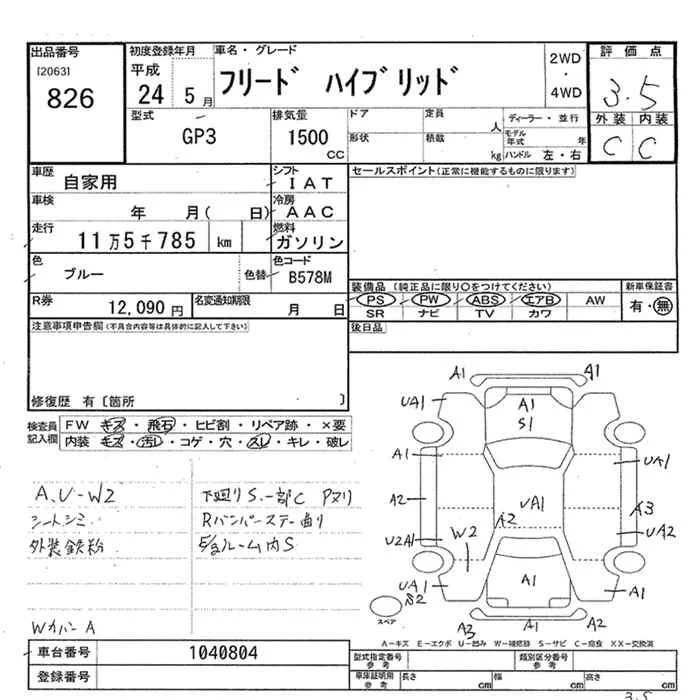 出品番号
[2063]
826
初度登録年月
平成
24 5月
車名・グレード
フリード ハイブリッド
2WD
・
4WD
評価点
3.5
外装 内装
C C
型式
GP3
排気量
1500
CC
ドア
形状
定員
人
積載
kg
ディーラー・並行
モデル年式 年
ハンドル 左・右
車歴
自家用
シフト
IAT
車検
年 月( 日)
冷房
AAC
走行
11万5千785 km
燃料
ガソリン
色
ブルー
色替
色コード
B578M
R券
12,090円
名変通知期限
月 日
セールスポイント(正常に機能するものに限ります)
装備品 (純正品に限り○をつけてください)
PS PW ABS エアB AW
SR ナビ TV カワ
新車保証書
有・無
後日品
注意事項申告欄(不具合内容等は具体的に記入して下さい)
修復歴 有〔箇所 〕
検査員記入欄
FW キズ・飛石・ヒビ割・リペア跡・×要
内装 キズ・汚レ・コゲ・穴・スレ・キレ・破レ
A,U-W2
シートシミ
外装鉄粉
Wカバー A
下廻りS.一部C Pヌリ
Rバンパーステー曲り
ルーム内S
A1 A1
UA1
A1
S1
A1
UA1
A2
UA1
A2
A3
U2A1
W2
UA2
UA1
S2
A1
A1
スペア
A3
A2
A-キズ E-エクボ U-凹み W-補修跡 S-サビ C-腐食 XX-交換済
車台番号
1040804
登録番号
型式指定番号
参考
類別区分番号
参考
車庫証明用
参考
長さ cm
幅 cm
高さ cm
3.5